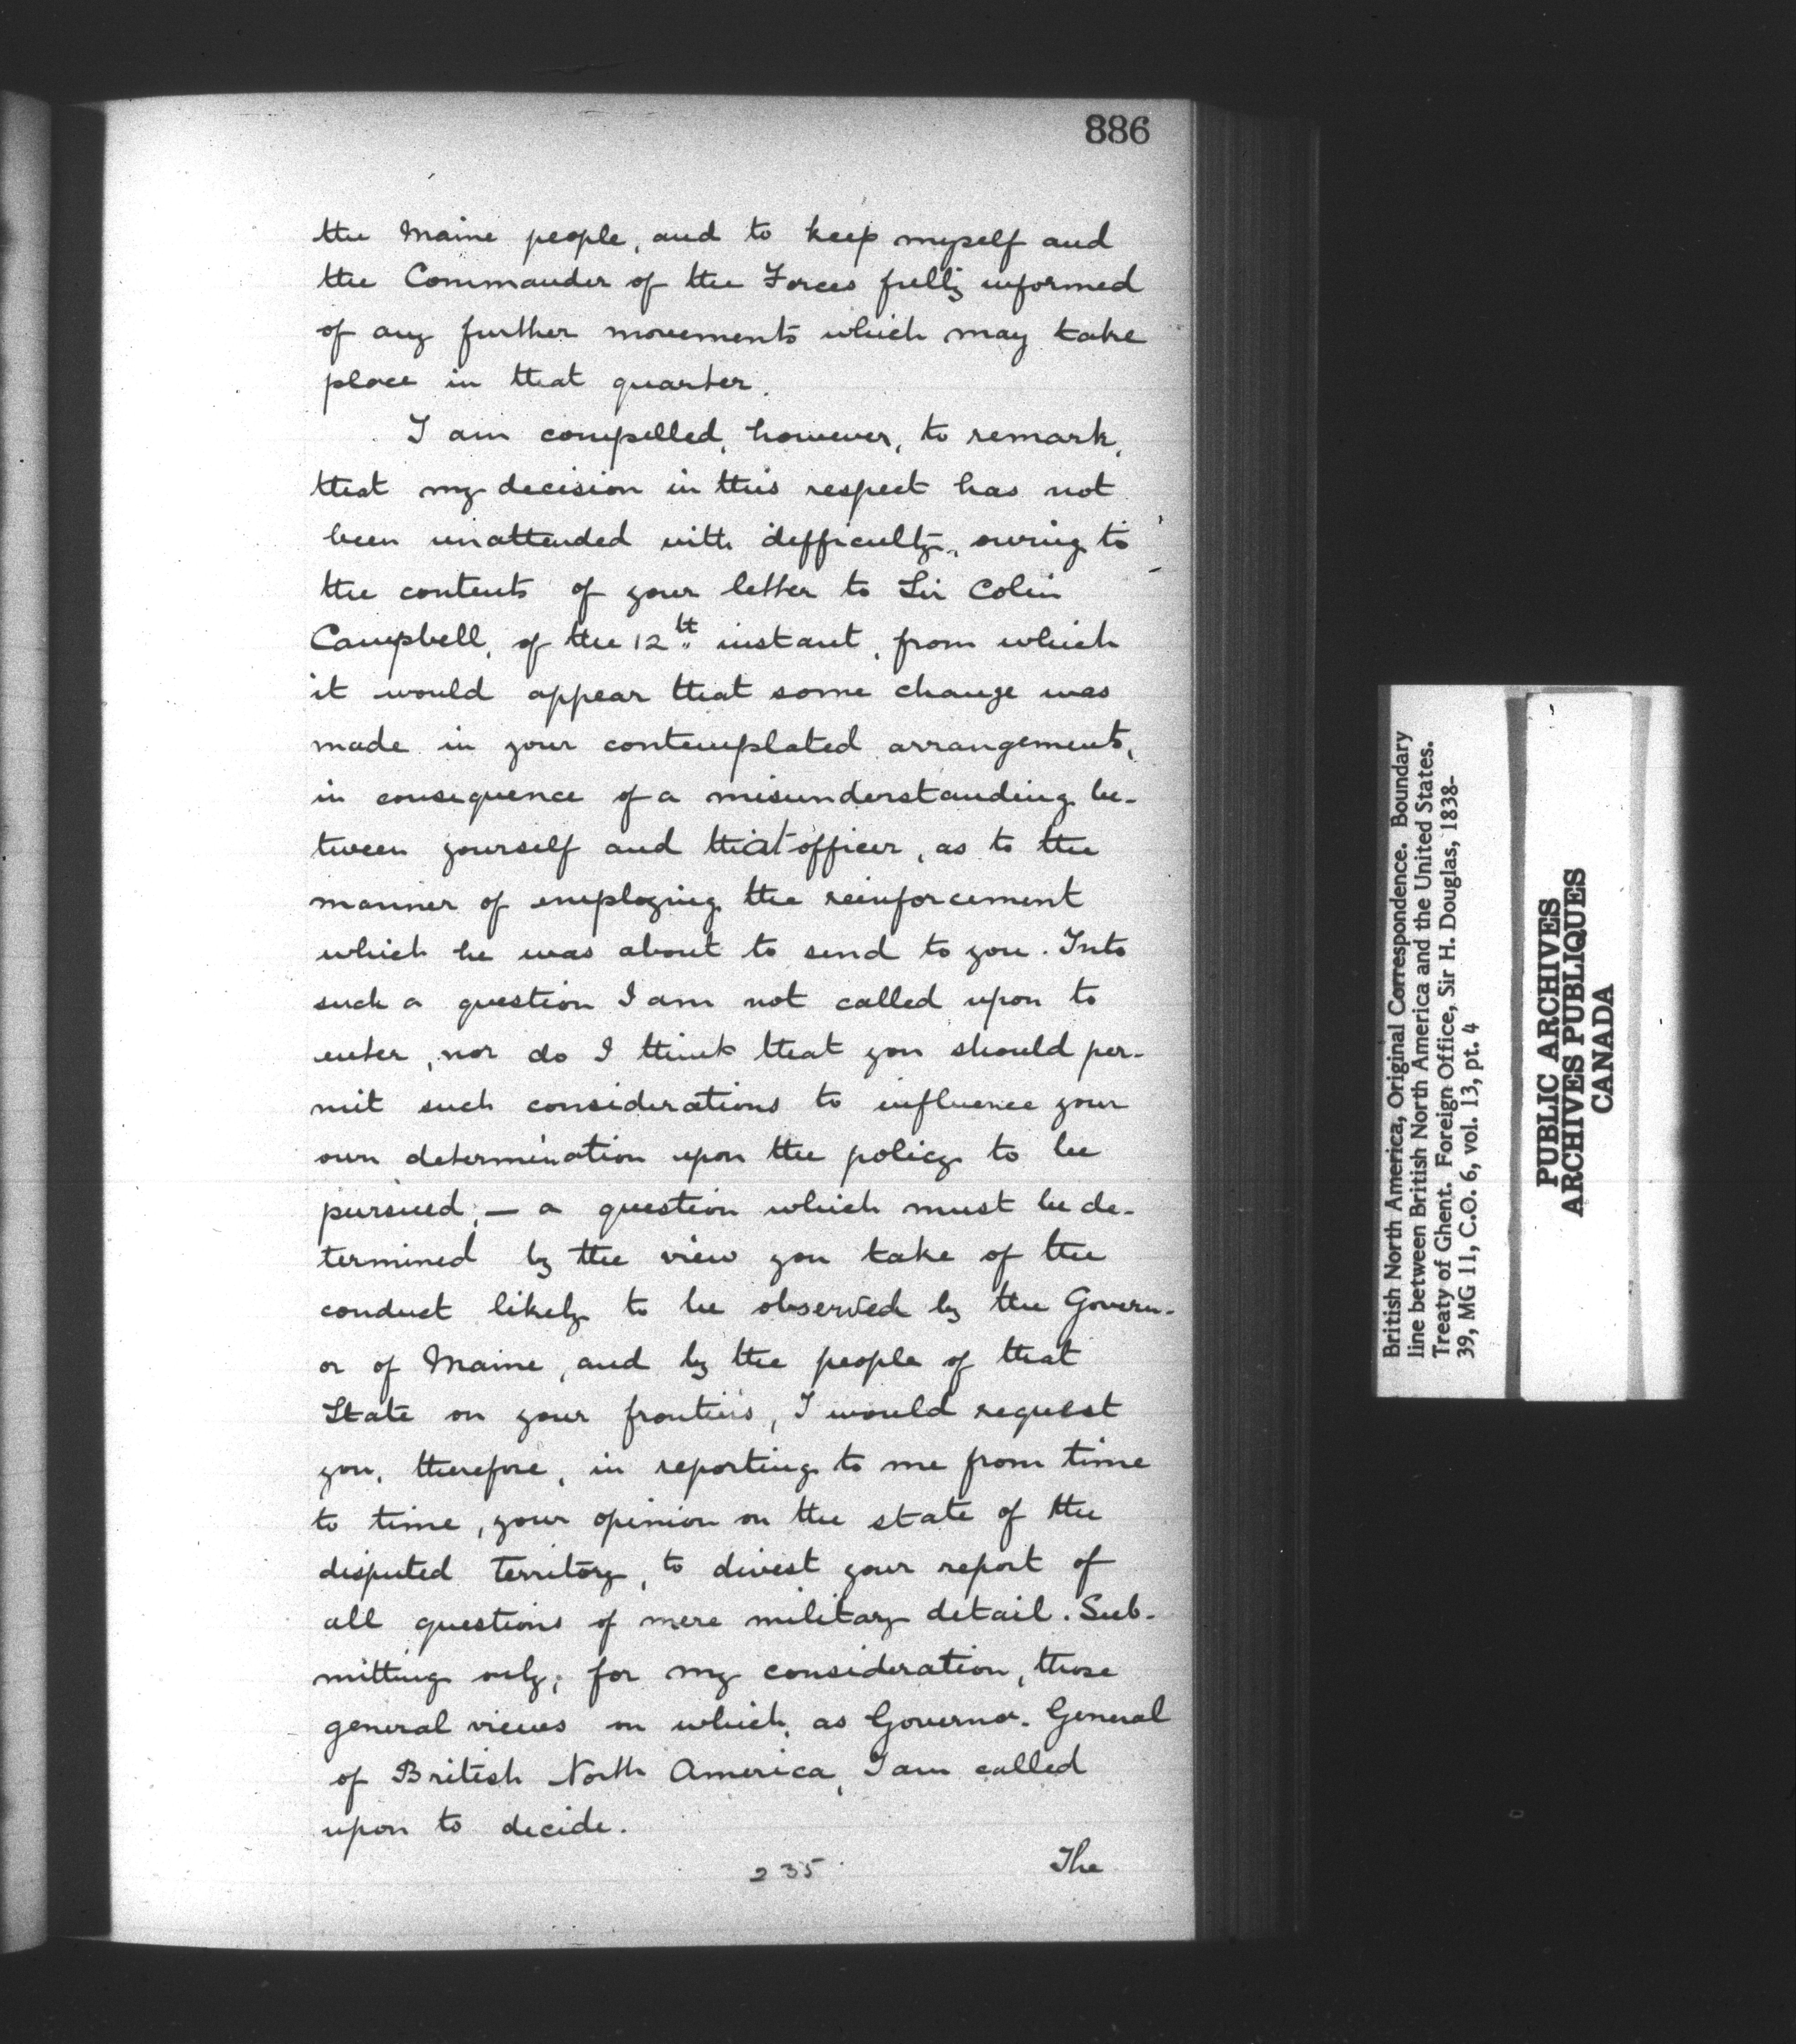 886
the Maine people, and to keep myself and
the Commander of the Forces fully informed
of any further movements which may take
place in that quarter.
I am compelled, however, to remark,
that my decision in this respect has not
been unattended with difficulty, owing to
the contents of your letter to Sir Colin
Campbell, of the 12th instant, from which
it would appear that some change was
made in your contemplated arrangements,
in consequence of a misunderstanding be-
tween yourself and that officer, as to the
manner of employing the reinforcement
which he was about to send to you. Into
such a question I am not called upon to
enter, nor do I think that you should per-
mit such considerations to influence your
own determination upon the policy to be
pursued; — a question which must be de-
termined by the view you take of the
conduct likely to be observed by the Govern-
or of Maine, and by the people of that
State on your frontiers, I would request
you, therefore, in reporting to me from time
to time, your opinion on the state of the
disputed Territory, to divest your report of
all questions of mere military detail. Sub-
mitting only; for my consideration, those
general views on which, as Governor-General
of British North America, I am called
upon to decide.
235
The
British North America, Original Correspondence. Boundary
line between British North America and the United States.
Treaty of Ghent. Foreign Office, Sir H. Douglas, 1838-
39, MG 11, C.O. 6, vol. 13, pt. 4
PUBLIC ARCHIVES
ARCHIVES PUBLIQUES
CANADA